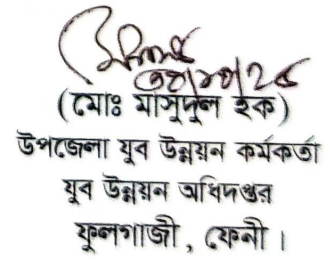 (মোঃ মাসুদুল হক)
উপজেলা যুব উন্নয়ন কর্মকর্তা
যুব উন্নয়ন অধিদপ্তর
ফুলগাজী, ফেনী।